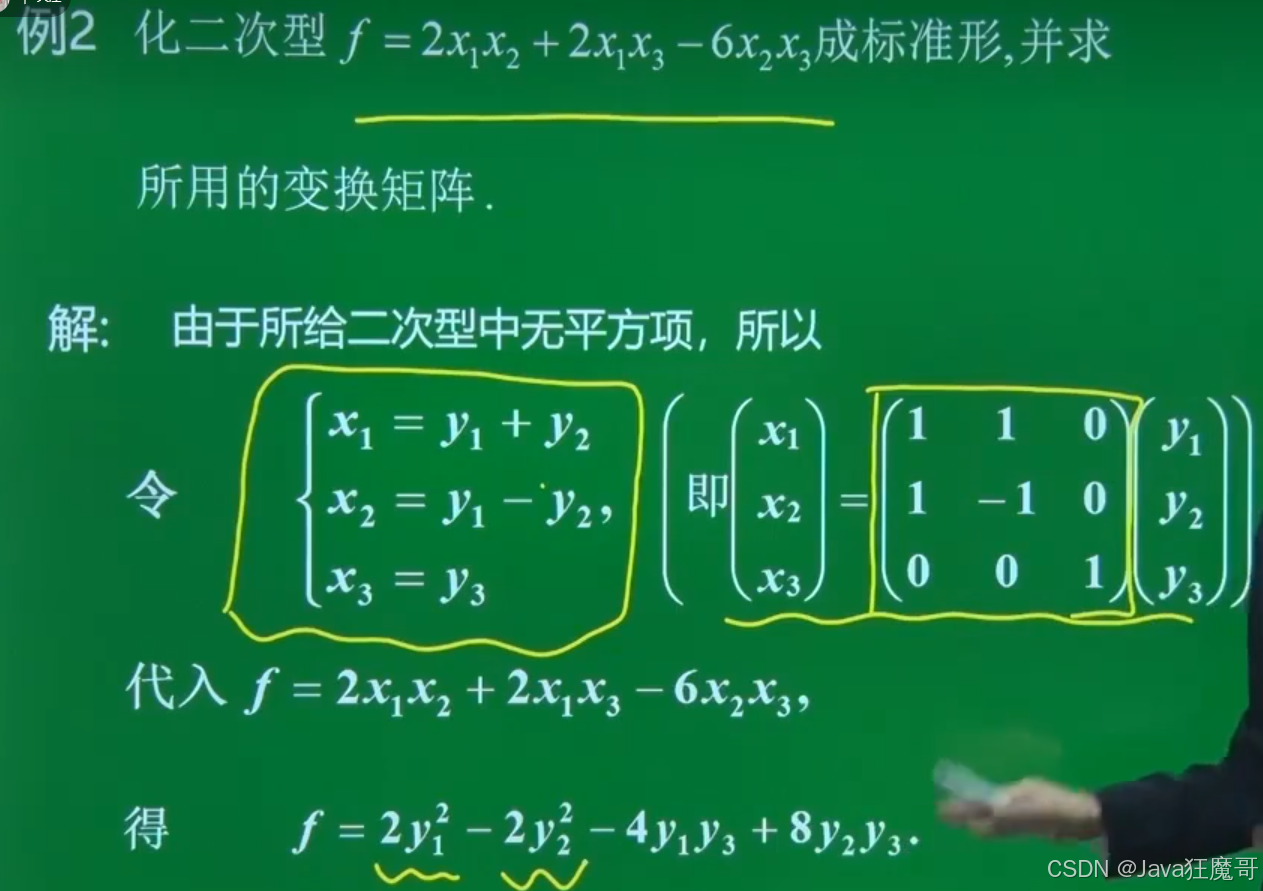 例2 化二次型 f = 2x₁x₂ + 2x₁x₃ − 6x₂x₃成标准形,并求
所用的变换矩阵.
解: 由于所给二次型中无平方项，所以
令 { x₁ = y₁ + y₂ x₂ = y₁ − y₂, x₃ = y₃ ( 即 ( x₁ x₂ x₃ ) = ( 1 1 0 1 −1 0 0 0 1 ) ( y₁ y₂ y₃ ) )
代入 f = 2x₁x₂ + 2x₁x₃ − 6x₂x₃,
得 f = 2y₁² − 2y₂² − 4y₁y₃ + 8y₂y₃.
CSDN @Java狂魔哥